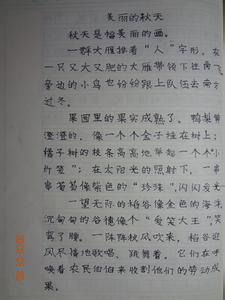 美丽的秋天
秋天是幅美丽的画。
一群大雁排着“人”字形，在
一只又大又肥的大雁带领下往南飞
旁边的小鸟也纷纷跟上队伍去南方
过冬。
果园里的果实成熟了。鸭梨黄
澄澄的，像一个个金子挂在树上；
橘子树的枝条高高地举起一个个“小
灯笼”；在太阳光的照射下，一串
串葡萄像紫色的“珍珠”，闪闪发光
一望无际的稻谷像金色的海洋
沉甸甸的谷穗像个“爱笑大王”，笑
弯了腰。一阵阵秋风吹来，稻谷迎
风尽情地歌唱，跳舞着，它们在呼
唤着农民伯伯来收割他们的劳动成
果。